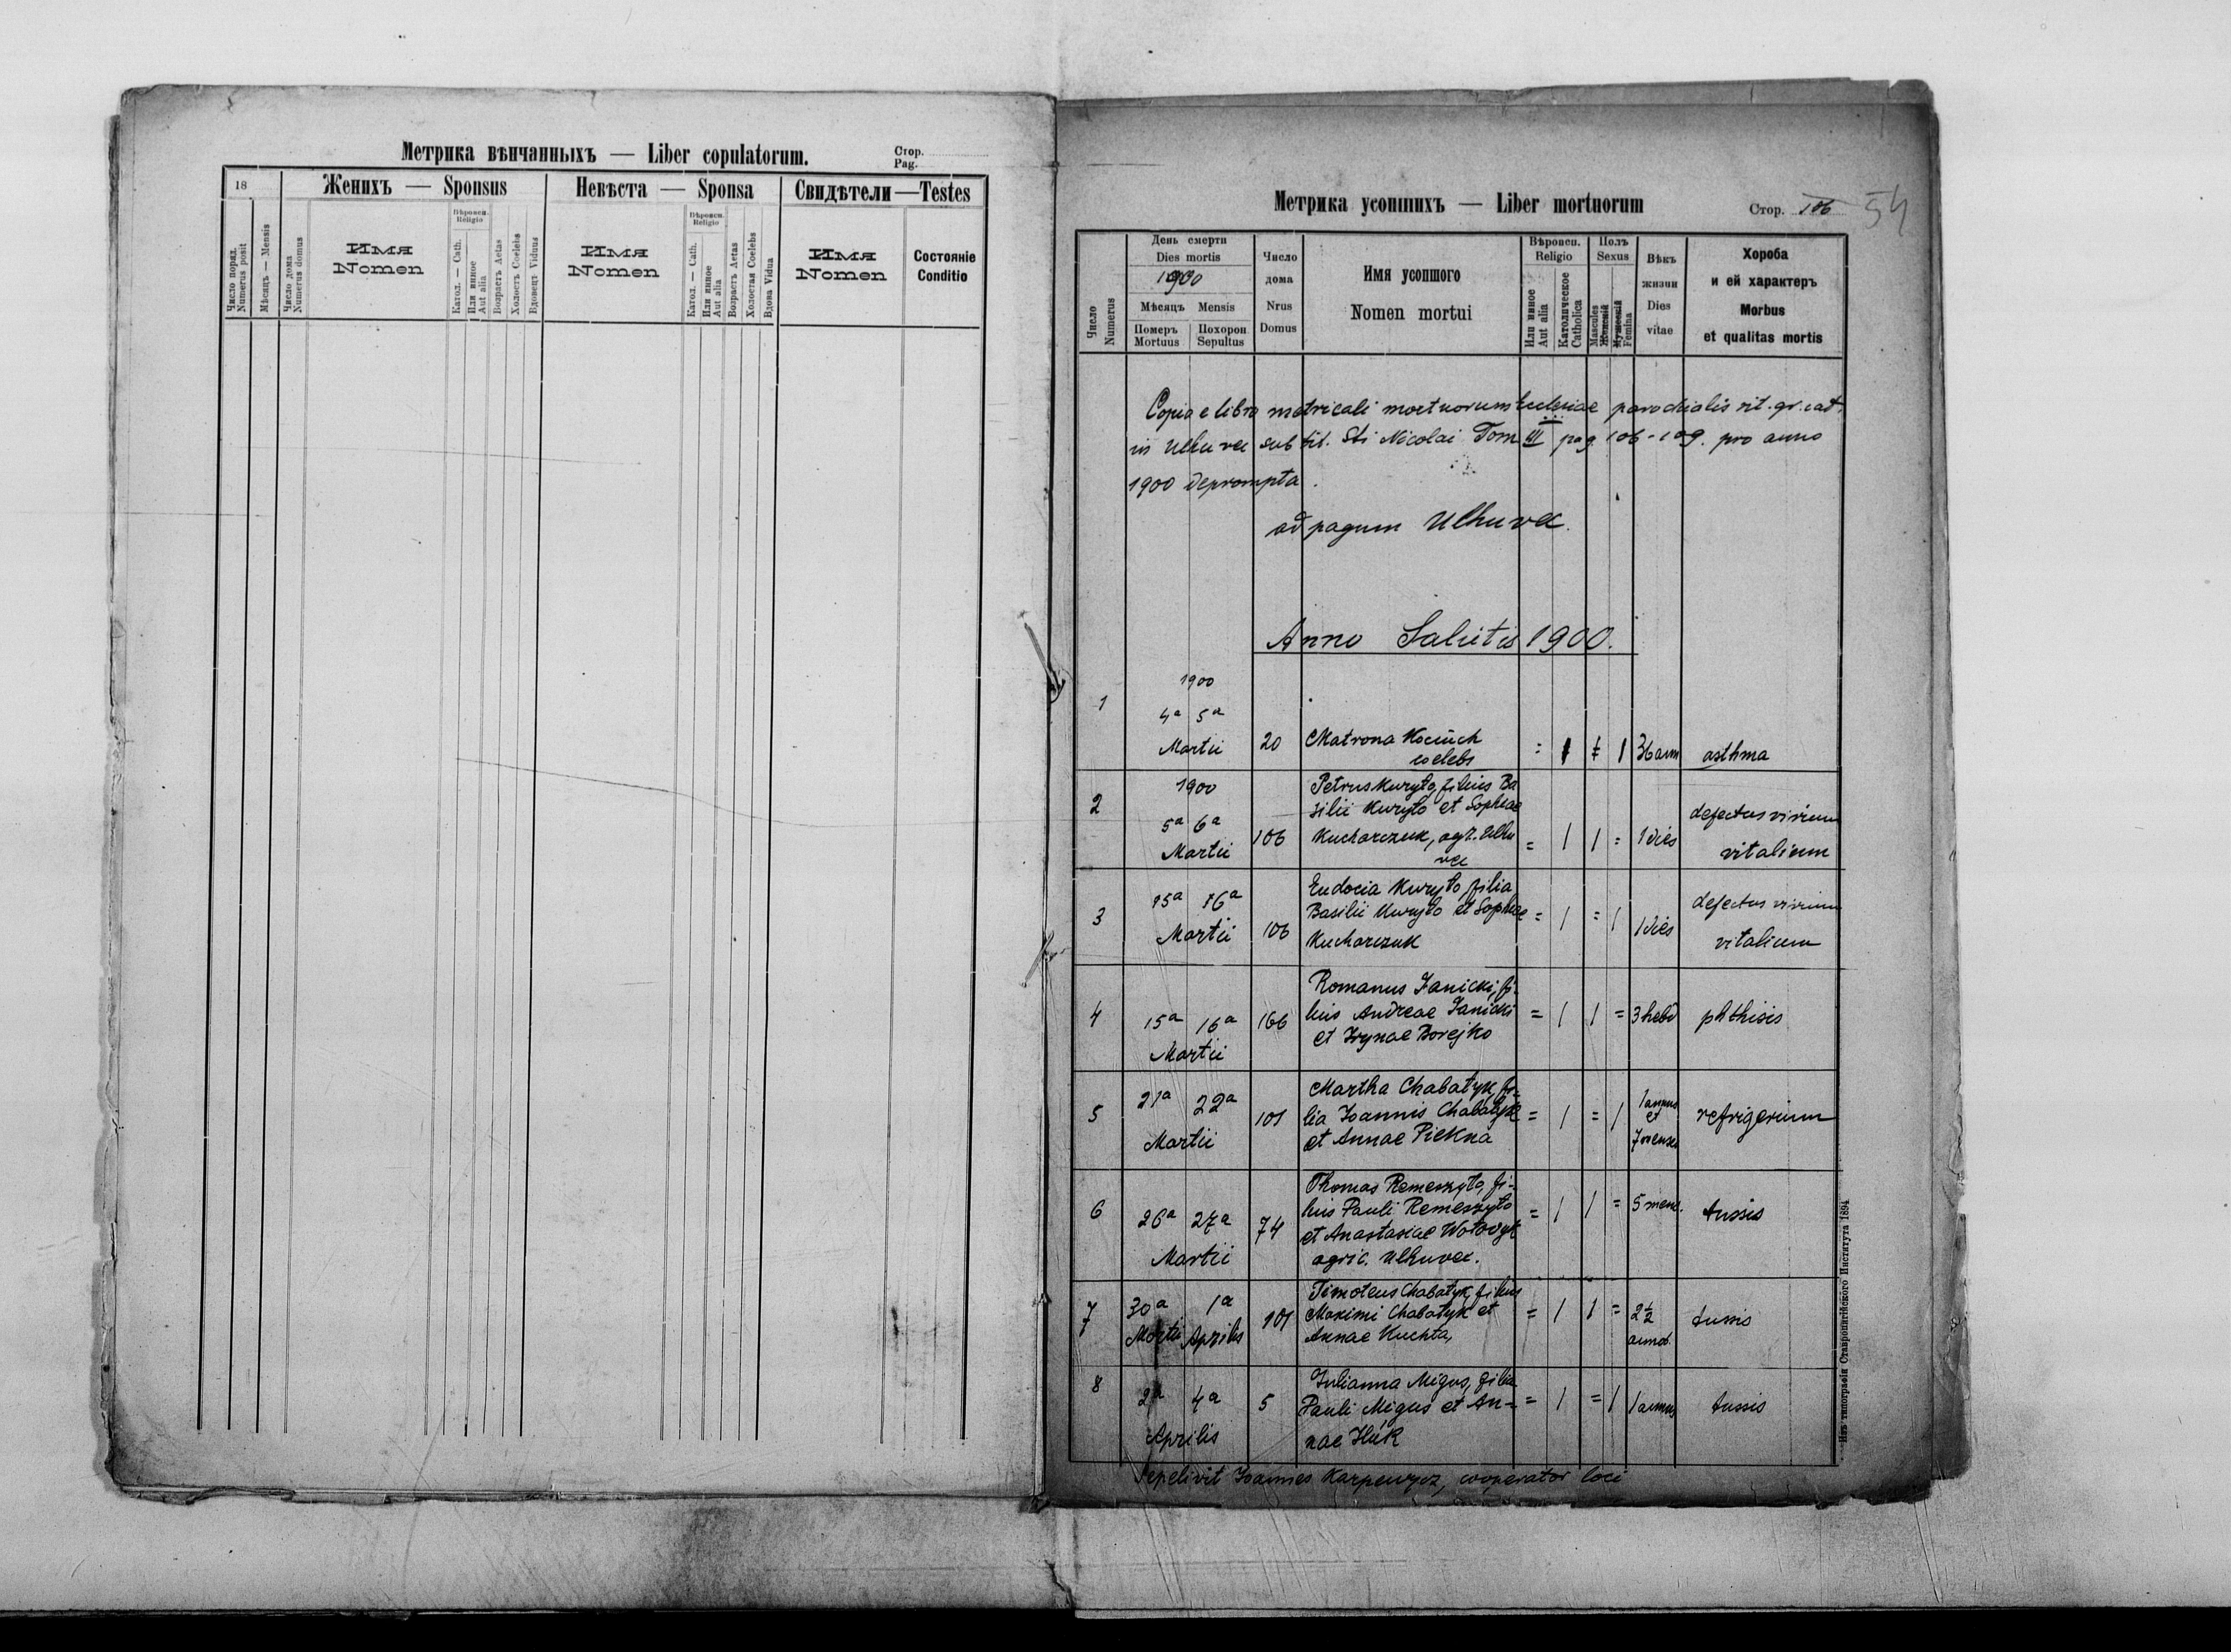 Метрика вѣнчанныхъ — Liber copulatorum.
Стор.
Pag.
18
Женихъ — Sponsus
Невѣста — Sponsa
Свидѣтели — Testes
Число поряд.
Numerus posit
Мѣсяцъ — Mensis
Число дома
Numerus domus
Имя
Nomen
Вѣроисп.
Religio
Катол. — Cath.
Или инное
Aut alia
Возрастъ Aetas
Холостъ Coelebs
Вдовецъ Viduus
Имя
Nomen
Вѣроисп.
Religio
Катол. — Cath.
Или инное
Aut alia
Возрастъ Aetas
Холостая Coelebs
Вдова Vidua
Имя
Nomen
Состояніе
Conditio
Метрика усопшихъ — Liber mortuorum
Стор. 106
54
Число
Numerus
День смерти
Dies mortis
1900
Мѣсяцъ Mensis
Померъ
Mortuus
Похорон
Sepultus
Число
дома
Nrus
Domus
Имя усопшого
Nomen mortui
Вѣроисп.
Religio
Или инное
Aut alia
Католическое
Catholica
Полъ
Sexus
Mascules
Женскій
Мужескій
Femina
Вѣкъ
жизни
Dies
vitae
Хороба
и ей характеръ
Morbus
et qualitas mortis
Copia e libro metricali mortuorum Ecclesiae parochialis rit. gr. cat.
in Ulhuvek sub tit. Sti Nicolai Tom III pag. 106-109. pro anno
1900 deprompta.
ad pagum Ulhuvek.
Anno Salutis 1900.
1
1900
4a 5a
Martii
20
Matrona Kociuch
coelebs
= 1 = 1
36 ann
asthma
2
1900
5a 6a
Martii
106
Petrus Kuryło, filius Ba
silii Kuryło et Sophiae
Kucharczuk, agr. Ulhu
vec
= 1 1 =
1 dies
defectus virium
vitalium
3
15a 16a
Martii
106
Eudocia Kuryło, filia
Basilii Kuryło et Sophiae
Kucharczuk
= 1 = 1
1 dies
defectus virium
vitalium
4
15a 16a
Martii
166
Romanus Janicki, fi-
lius Andreae Janicki
et Irynae Borejko
= 1 1 =
3 hebd
phthisis
5
21a 22a
Martii
101
Martha Chabatyk, fi-
lia Joannis Chabatyk
et Annae Piekna
= 1 = 1
1 annus
et
7 menses
refrigerium
6
26a 27a
Martii
74
Thomas Remeszyło, fi-
lius Pauli Remeszyło
et Anastasiae
agric. Ulhuvec.
= 1 1 =
5 mens.
tussis
7
30a 1a
Martii Aprilis
101
Timoteus Chabatyk, filius
Maximi Chabatyk et
Annae Kuchta,
= 1 1 =
2 1/2
annor.
tussis
8
2a 4a
Aprilis
5
Julianna Migus, filia
Pauli Migus et An-
nae Huk
= 1 = 1
1 annus
tussis
Sepelivit Joannes Karpewycz, cooperator loci
Изъ типографіи Ставропигійского Института 1894